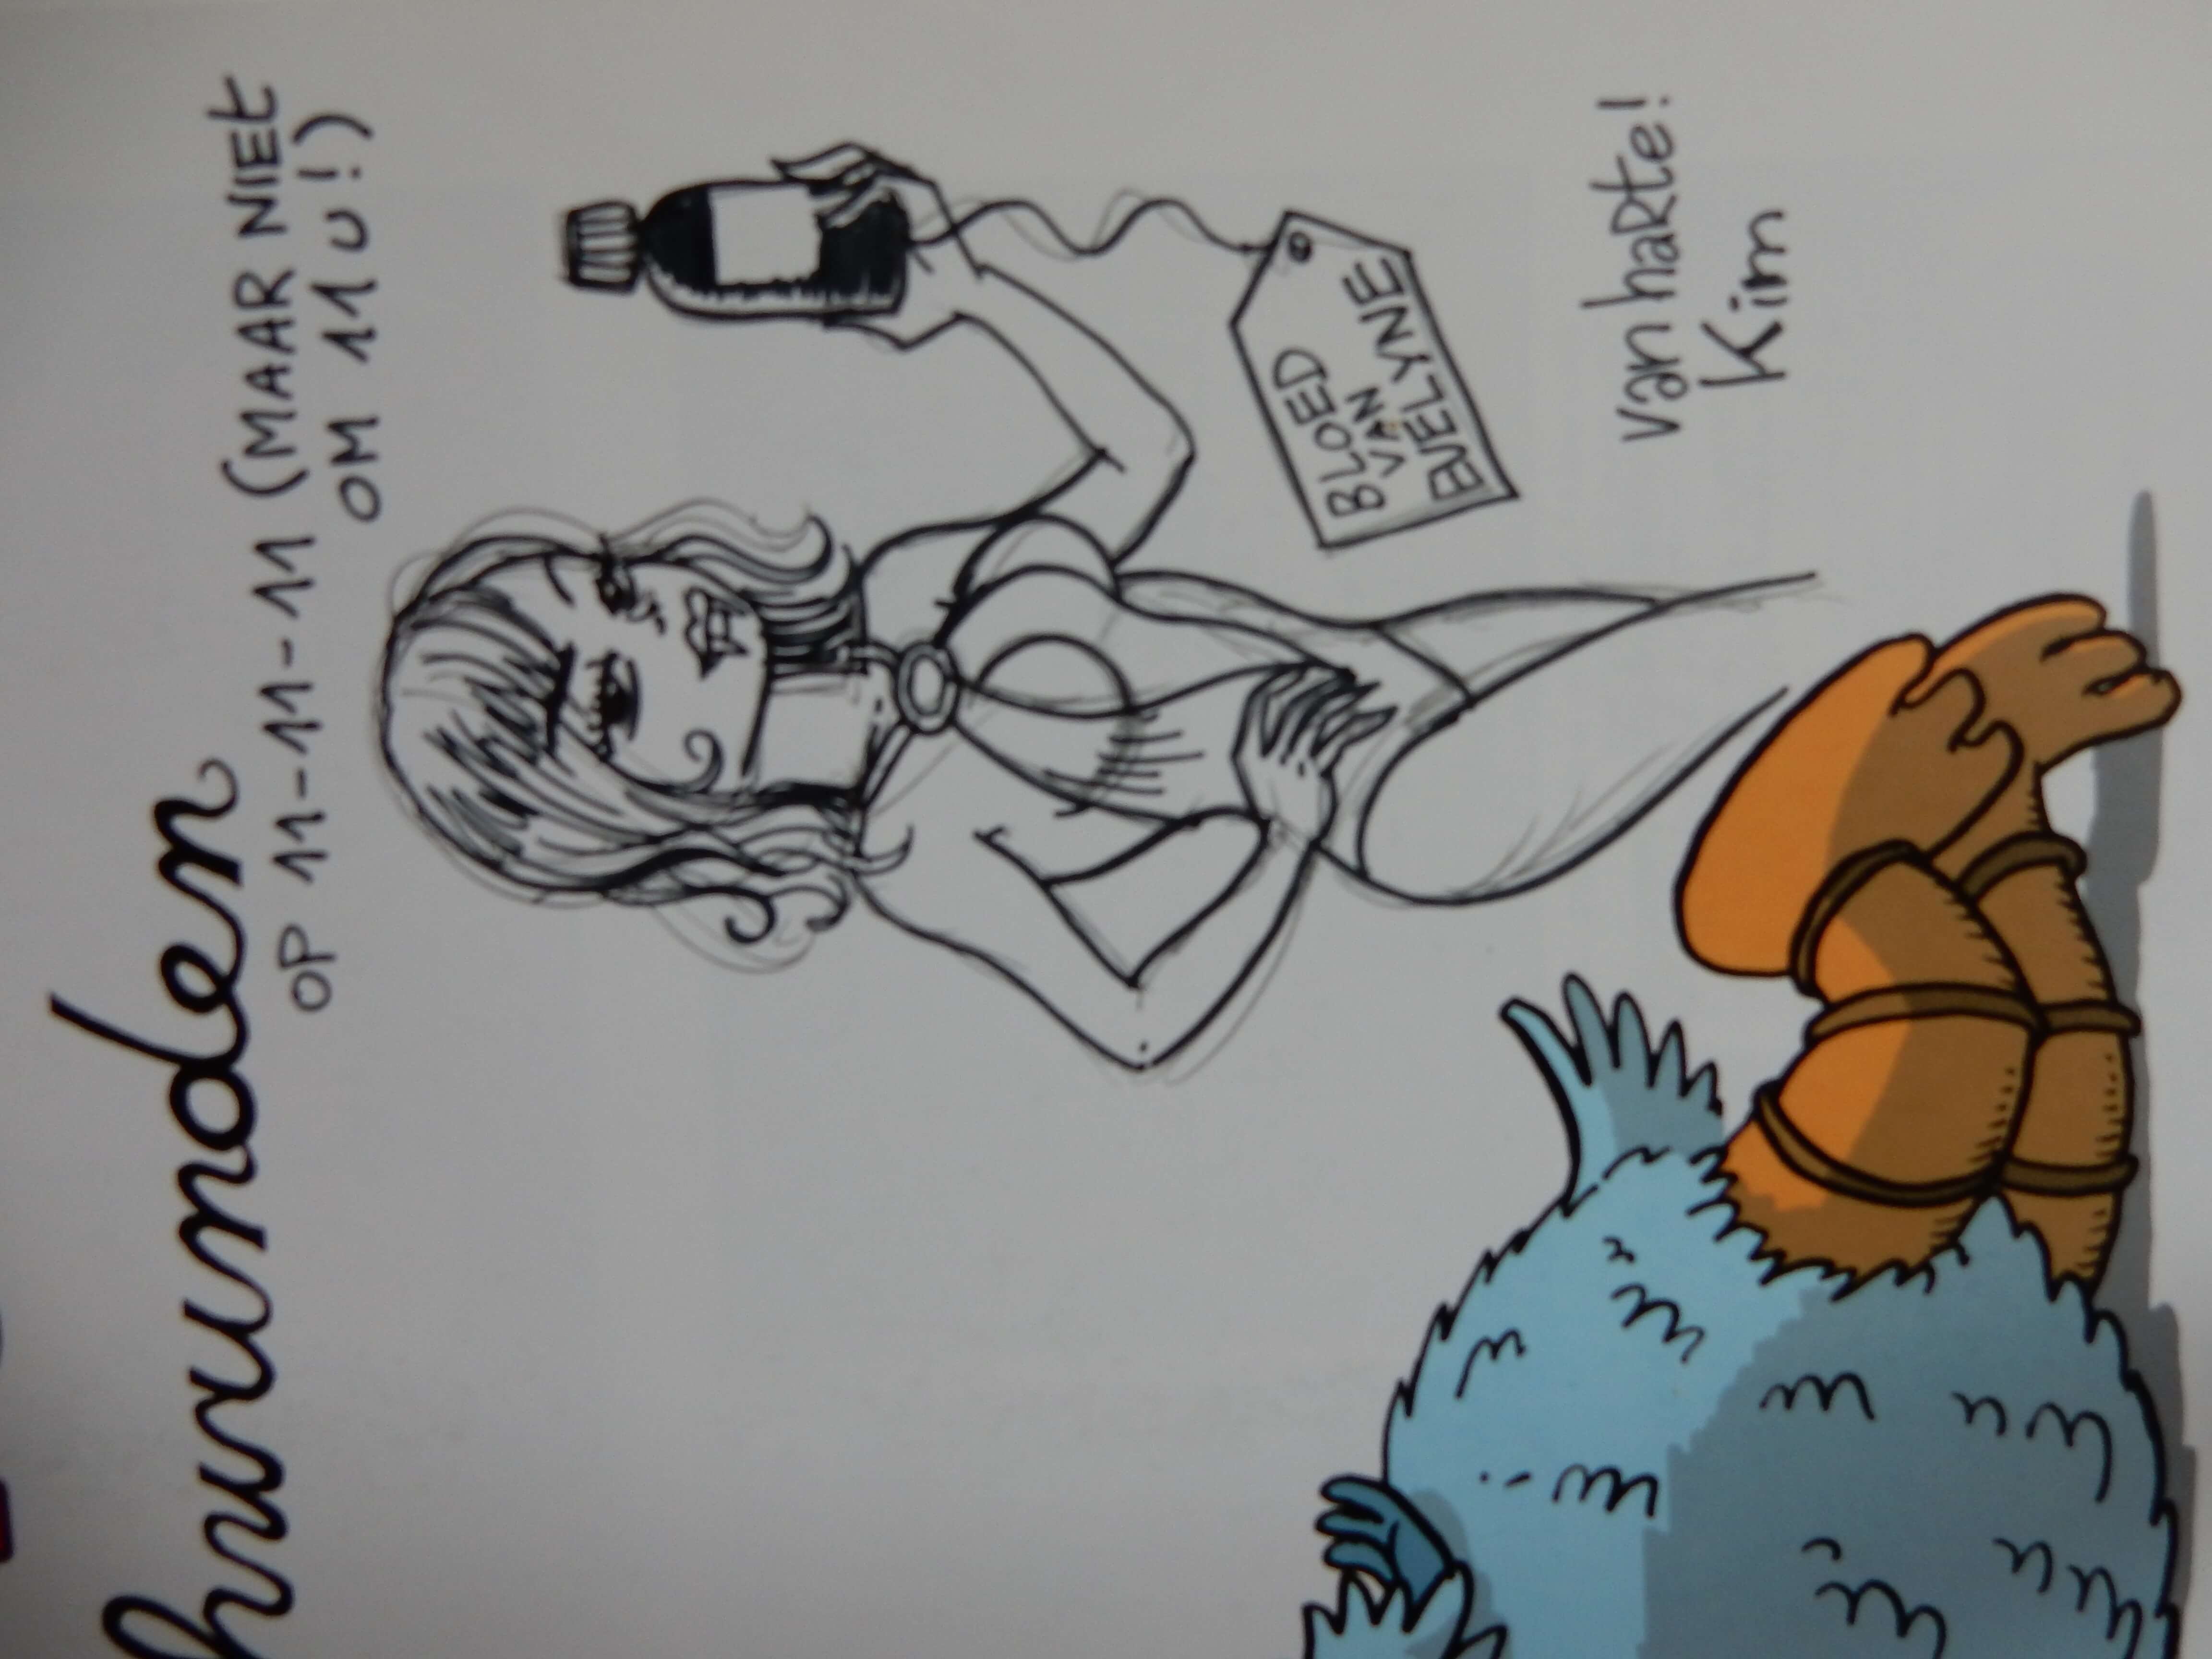 hwunden
OP 11-11-11 (MAAR NIET
OM 11 U!)
BLOED
VAN
EVELYNE
van haRte!
Kim